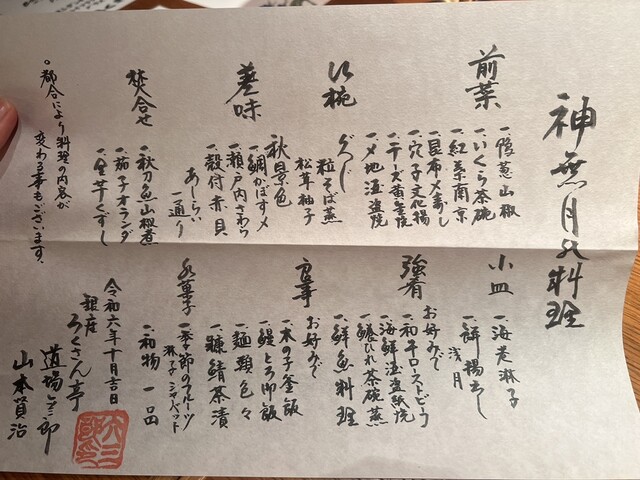 神無月の料理
前菜
一、隠元山椒
一、いくら茶碗
一、紅葉南京
一、昆布〆寿し
一、穴子文化揚
一、チーズ黄金焼
椀
ぐじ
粒そば蒸
松茸 柚子
差味
秋景色
一、鯛かぼす〆
一、瀬戸内さわら
一、殻付赤貝
あしらい
一通り
焚合せ
一、秋刀魚山椒煮
一、茄子オランダ
一、里芋くずし
小皿
一、海老
浅月
強肴
お好みで
一、和牛ローストビーフ
一、海鮮
一、鱶ひれ茶碗蒸
一、鮮魚料理
食事
お好みで
一、木の子釜飯
一、鰻とろ御飯
一、麺類色々
一、鯖茶漬
水菓子
一、季節のフルーツ
シャーベット
一、和物 一品
令和六年十月吉日
銀座
ろくさん亭
道場六三郎
山本賢治
。都合により料理の内容が
変わる事もございます。